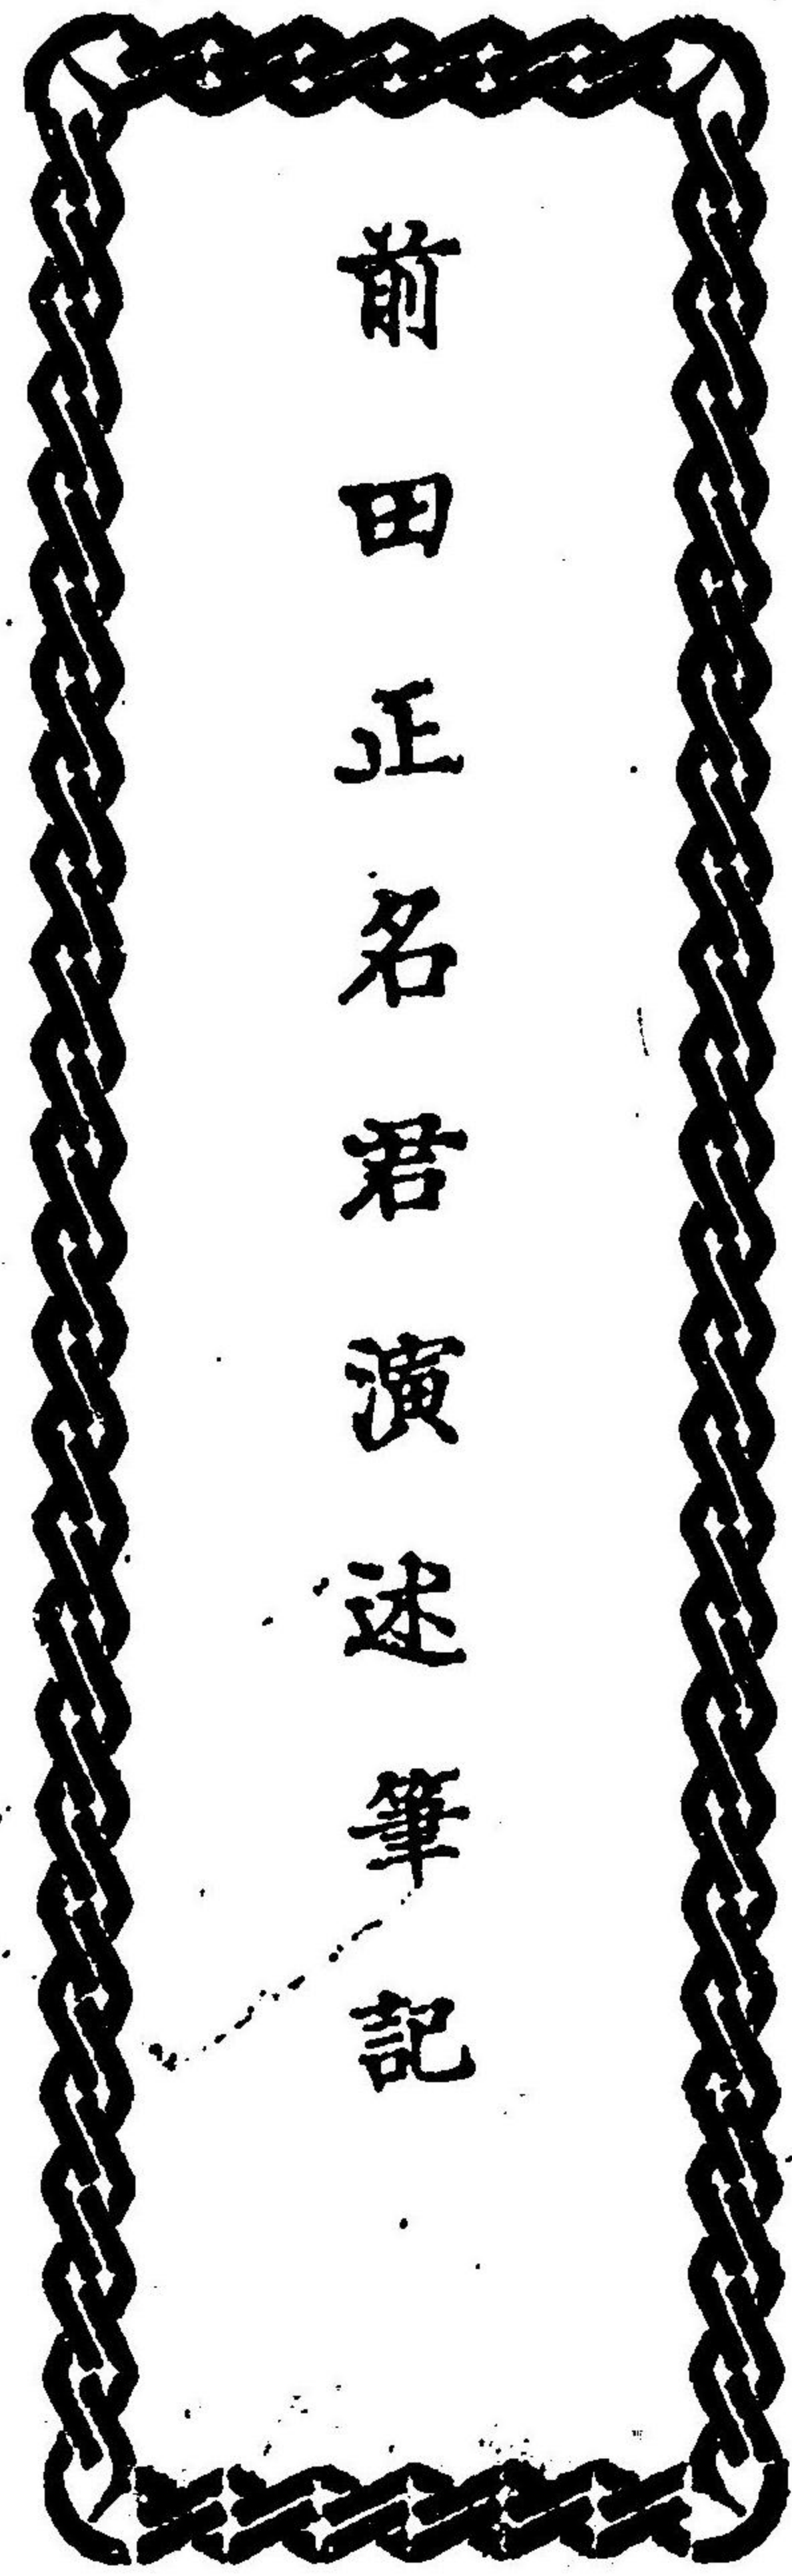 前田正名君演述筆記